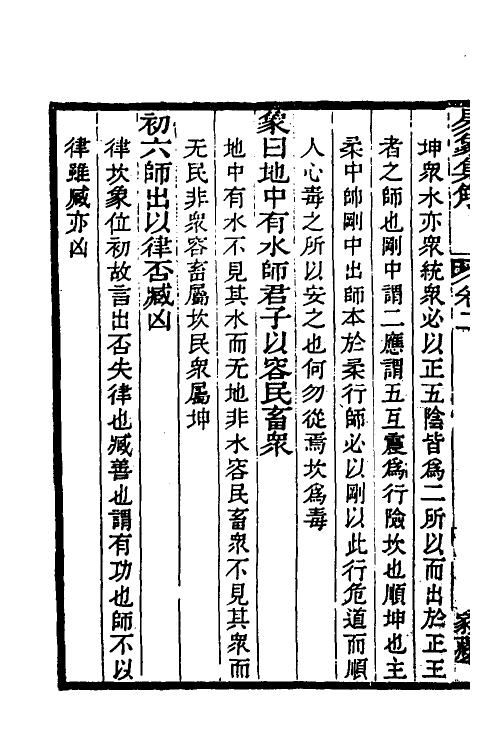 坤衆水亦衆統衆必以正五陰皆爲二所以而出於正王
者之師也剛中謂二應謂五互震爲行險坎也順坤也主
柔中帥剛中出師本於柔行師必以剛以此行危道而順
人心毒之所以安之也何勿從焉坎爲毒
象曰地中有水師君子以容民畜衆
地中有水不見其水而无地非水容民畜衆不見其衆而
无民非衆容畜屬坎民衆屬坤
初六師出以律否臧凶
律坎象位初故言出否失律也臧善也謂有功也師不以
律雖臧亦凶